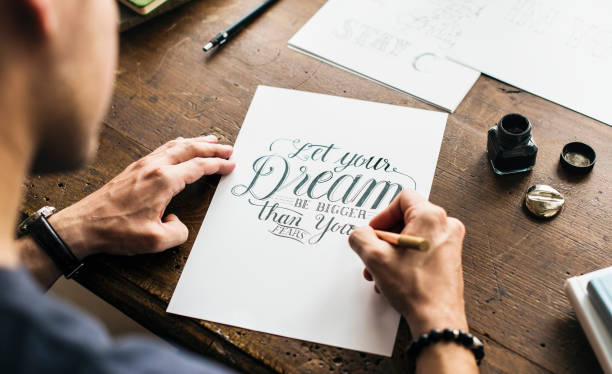 Let your
Dream
BE BIGGER
than You
FEARS
STAY